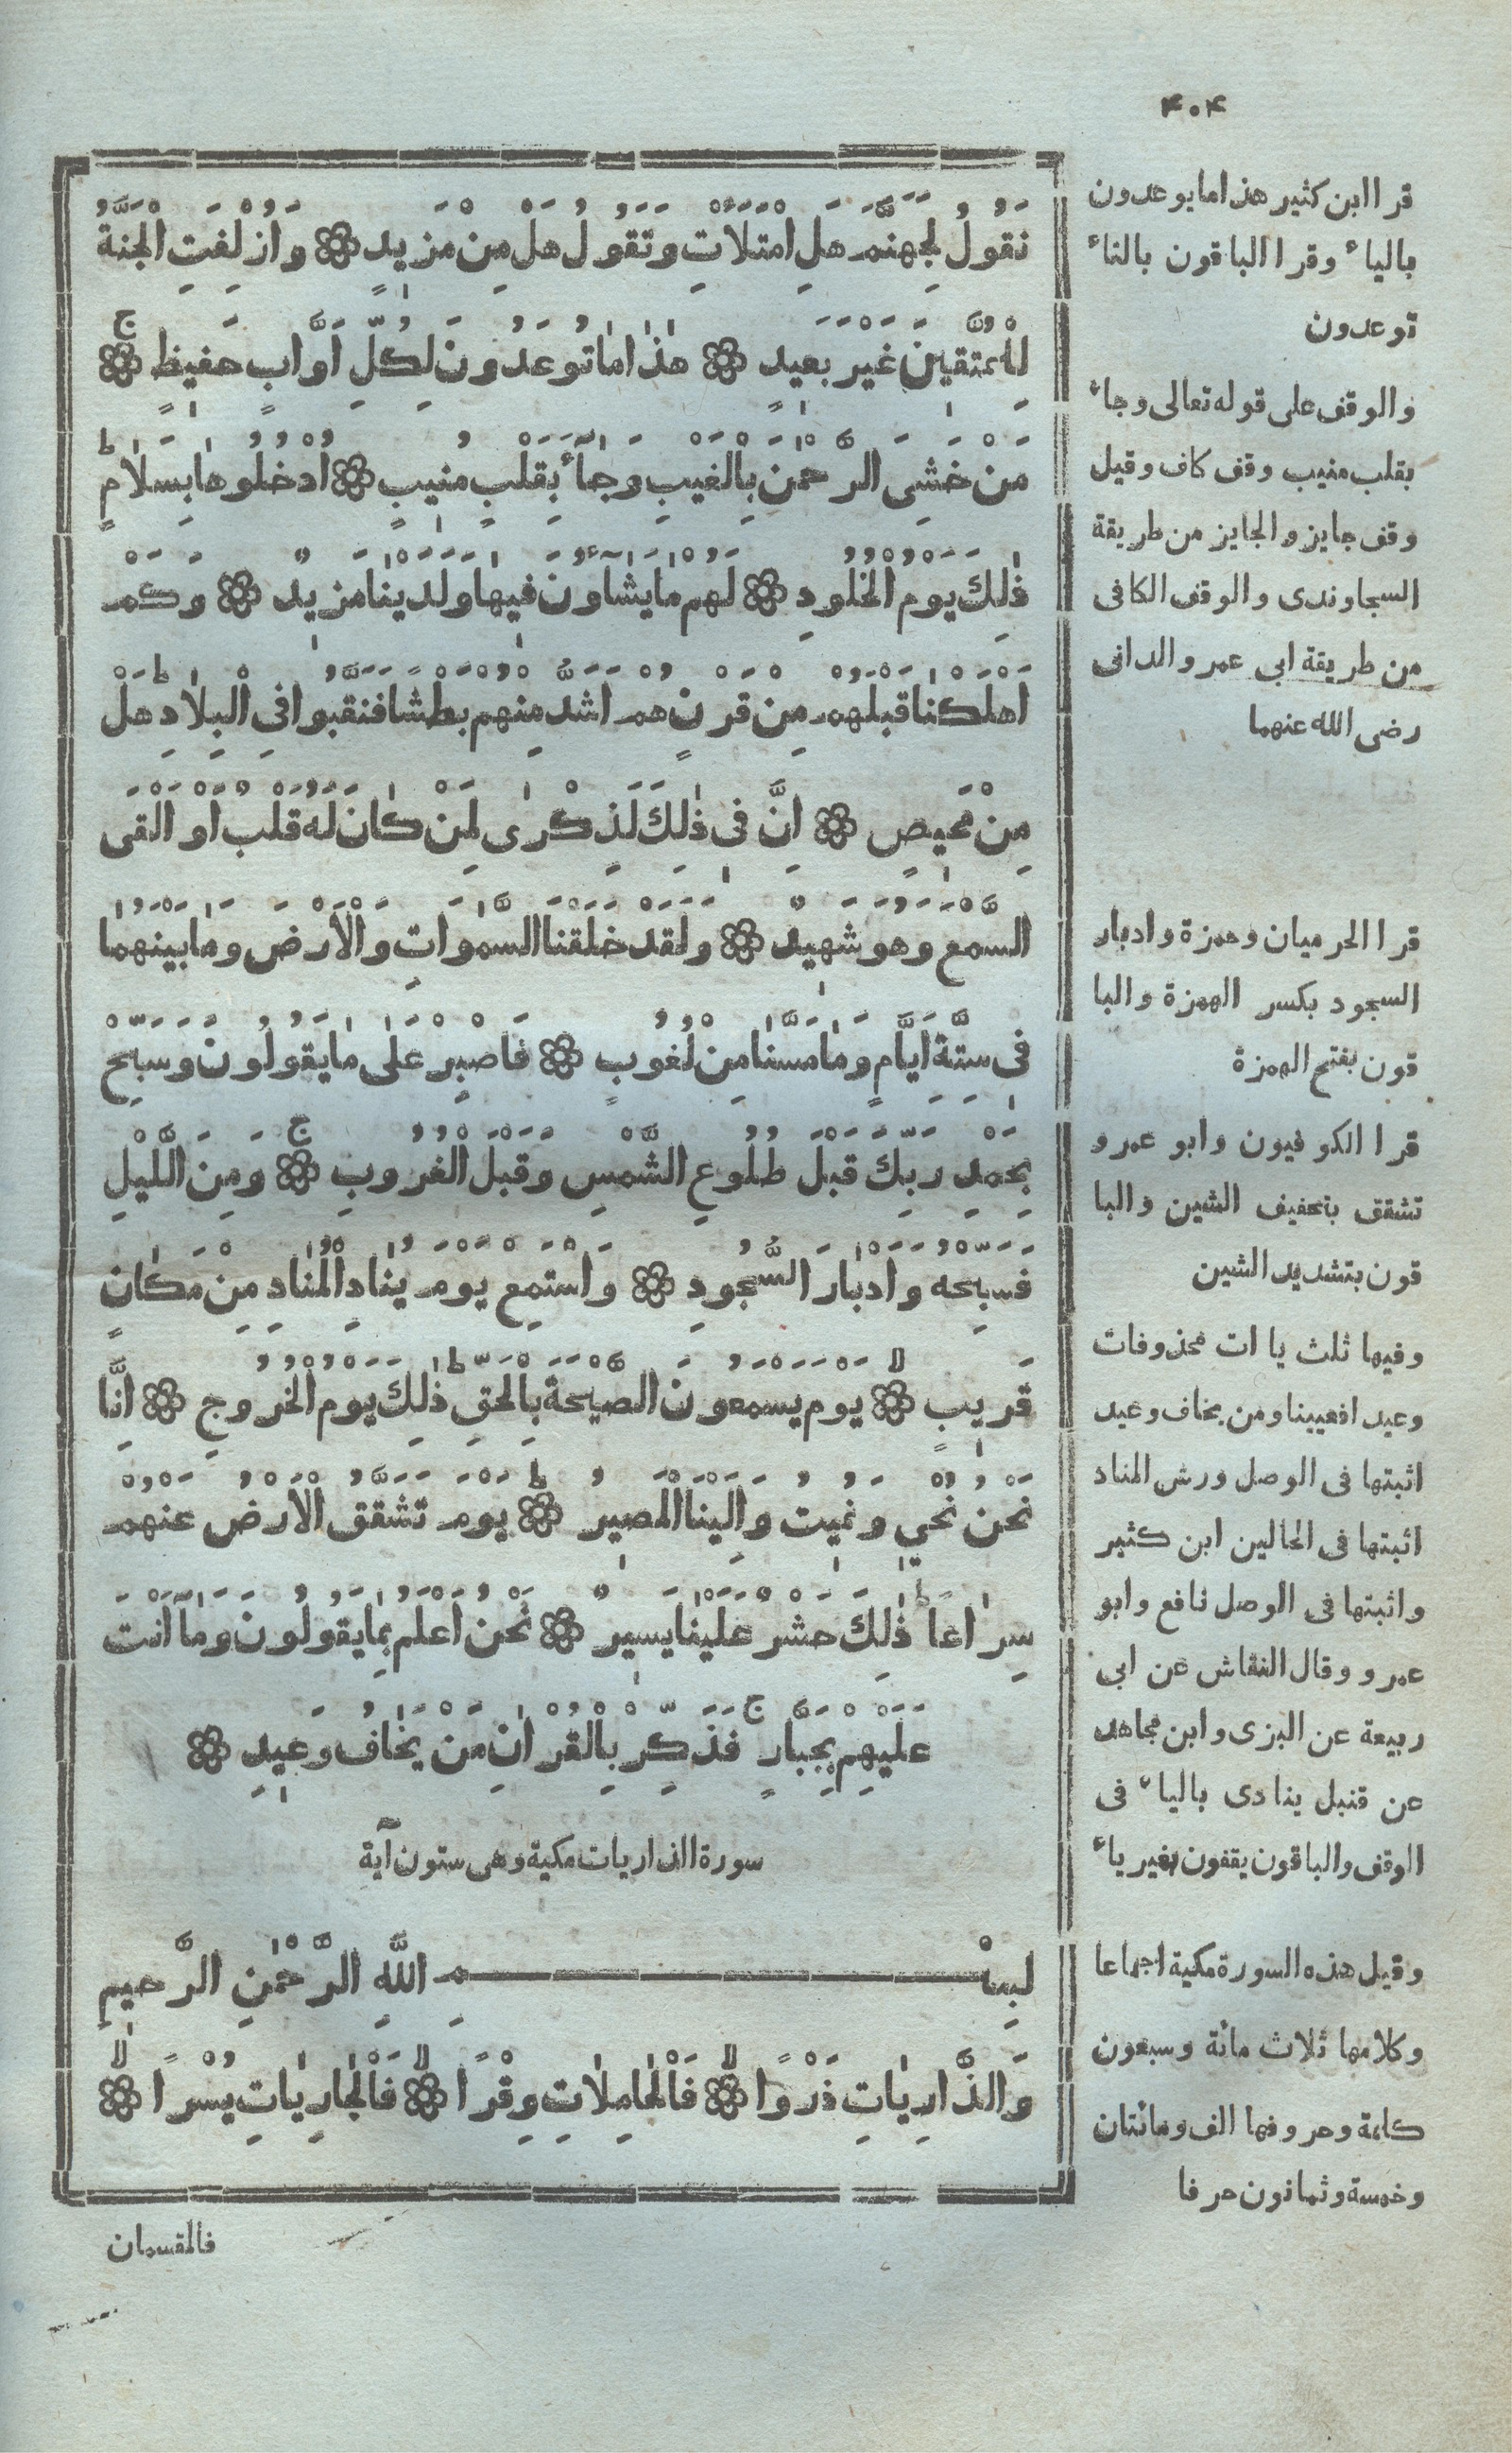 ۴۰۴
نَقُولُ لِجَهَنَّمَ هَلِ امْتَلَأْتِ وَتَقُولُ هَلْ مِنْ مَزِيدٍ ۞ وَاُزْلِفَتِ الْجَنَّةُ
لِلْمُتَّقِينَ غَيْرَ بَعِيدٍ ۞ هٰذَا مَا تُوعَدُونَ لِكُلِّ اَوَّابٍ حَفِيظٍ ۞ ج
مَنْ خَشِيَ الرَّحْمٰنَ بِالْغَيْبِ وَجَآءَ بِقَلْبٍ مُنِيبٍ ۞ اُدْخُلُوهَا بِسَلَامٍ ط
ذٰلِكَ يَوْمُ الْخُلُودِ ۞ لَهُمْ مَا يَشَآؤُنَ فِيهَا وَلَدَيْنَا مَزِيدٌ ۞ وَكَمْ
اَهْلَكْنَا قَبْلَهُمْ مِنْ قَرْنٍ هُمْ اَشَدُّ مِنْهُمْ بَطْشًا فَنَقَّبُوا فِي الْبِلَادِ ط هَلْ
مِنْ مَحِيصٍ ۞ اِنَّ فِي ذٰلِكَ لَذِكْرٰى لِمَنْ كَانَ لَهُ قَلْبٌ اَوْ اَلْقَى
السَّمْعَ وَهُوَ شَهِيدٌ ۞ وَلَقَدْ خَلَقْنَا السَّمٰوَاتِ وَالْاَرْضَ وَمَا بَيْنَهُمَا
فِي سِتَّةِ اَيَّامٍ وَمَا مَسَّنَا مِنْ لُغُوبٍ ۞ فَاصْبِرْ عَلٰى مَا يَقُولُونَ وَسَبِّحْ
بِحَمْدِ رَبِّكَ قَبْلَ طُلُوعِ الشَّمْسِ وَقَبْلَ الْغُرُوبِ ۞ ج وَمِنَ اللَّيْلِ
فَسَبِّحْهُ وَاَدْبَارَ السُّجُودِ ۞ وَاسْتَمِعْ يَوْمَ يُنَادِ الْمُنَادِ مِنْ مَكَانٍ
قَرِيبٍ ۞ لا يَوْمَ يَسْمَعُونَ الصَّيْحَةَ بِالْحَقِّ ط ذٰلِكَ يَوْمُ الْخُرُوجِ ۞ اِنَّا
نَحْنُ نُحْيِ وَنُمِيتُ وَاِلَيْنَا الْمَصِيرُ ۞ ط يَوْمَ تَشَقَّقُ الْاَرْضُ عَنْهُمْ
سِرَاعًا ط ذٰلِكَ حَشْرٌ عَلَيْنَا يَسِيرٌ ۞ نَحْنُ اَعْلَمُ بِمَا يَقُولُونَ وَمَآ اَنْتَ
عَلَيْهِمْ بِجَبَّارٍ ج فَذَكِّرْ بِالْقُرْاٰنِ مَنْ يَخَافُ وَعِيدِ ۞
سورة الذاريات مكية وهى ستون آية
بِسْمِ اللّٰهِ الرَّحْمٰنِ الرَّحِيمِ
وَالذَّارِيَاتِ ذَرْوًا ۞ لا فَالْحَامِلَاتِ وِقْرًا ۞ لا فَالْجَارِيَاتِ يُسْرًا ۞ لا
فالمقسمات
قرا ابن كثير هذا ما يوعدون
بالياء وقرا الباقون بالتاء
توعدون
والوقف على قوله تعالى وجاء
بقلب منيب وقف كاف وقيل
وقف جايز والجايز من طريقة
السجاوندى والوقف الكافى
من طريقة ابى عمر والدانى
رضى الله عنهما
قرا الحرميان وحمزة وادبار
السجود بكسر الهمزة والبا
قون بفتح الهمزة
قرا الكوفيون وابو عمرو
تشقق بتخفيف الشين والبا
قون بتشديد الشين
وفيها ثلث يا ات محذوفات
وعيد افعيينا ومن يخاف وعيد
اثبتها فى الوصل ورش المناد
اثبتها فى الحالين ابن كثير
واثبتها فى الوصل نافع وابو
عمرو وقال النقاش عن ابى
ربيعة عن البزى وابن مجاهد
عن قنبل ينادى بالياء فى
الوقف والباقون يقفون بغير ياء
وقيل هذه السورة مكية اجماعا
وكلامها ثلاث مائة وسبعون
كلمة وحروفها الف ومائتان
وخمسة وثمانون حرفا